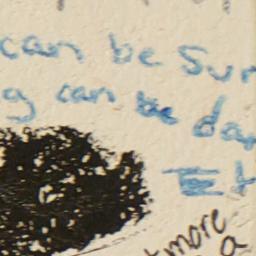 can be sur
g can be dar
Et
more
a